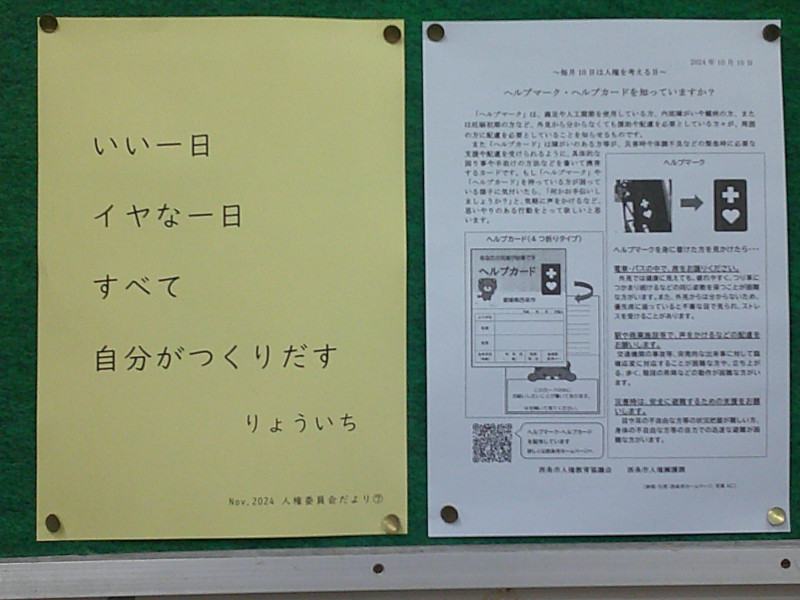 いい一日
イヤな一日
すべて
自分がつくりだす
りょういち
Nov.2024 人権委員会だより⑦
2024年10月10日
～毎月10日は人権を考える日～
ヘルプマーク・ヘルプカードを知っていますか？
「ヘルプマーク」は、義足や人工関節を使用している方、内部障がいや難病の方、また
は妊娠初期の方など、外見から分からなくても援助や配慮を必要としている方々が、周囲
の方に配慮を必要としていることを知らせるものです。
また「ヘルプカード」は障がいのある方等が、災害時や体調不良などの緊急時に必要な
支援や配慮を受けられるように、具体的な
困り事や手助けの方法などを書いて携帯
するカードです。もし「ヘルプマーク」や
「ヘルプカード」を持っている方が困って
いる様子に気付いたら、「何かお手伝いし
ましょうか？」と、気軽に声をかけるなど、
思いやりのある行動をとって欲しいと思
います。
ヘルプカード(4つ折りタイプ)
あなたの支援が必要です
ヘルプカード
愛媛県西条市
ヘルプマーク・ヘルプカード
を配布しています
詳しくは西条市ホームページへ
ヘルプマーク
ヘルプマークを身に着けた方を見かけたら…
電車・バスの中で、席をお譲りください。
外見では健康に見えても、疲れやすく、つり革に
つかまり続けるなどの同じ姿勢を保つことが困難
な方がいます。また、外見からは分からないため、
優先席に座っていると不審な目で見られ、ストレ
スを受けることがあります。
駅や商業施設等で、声をかけるなどの配慮を
お願いします。
交通機関の事故等、突発的な出来事に対して臨
機応変に対応することが困難な方や、立ち上が
る、歩く、階段の昇降などの動作が困難な方がい
ます。
災害時は、安全に避難するための支援をお願
いします。
目や耳の不自由な方等の状況把握が難しい方、
身体の不自由な方等の自力での迅速な避難が困
難な方がいます。
西条市人権教育協議会　西条市人権擁護課